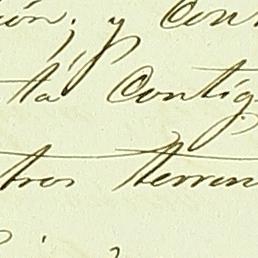 ión; y Con
tá Contig
tros terren